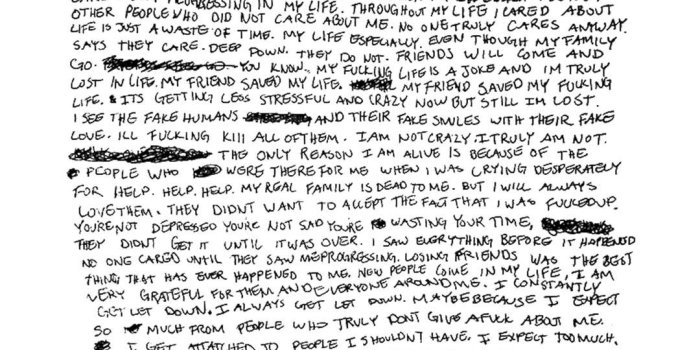 PROGRESSING IN MY LIFE. THROUGHOUT MY LIFE I CARED ABOUT
OTHER PEOPLE WHO DID NOT CARE ABOUT ME. NO ONE TRULY CARES ANYWAY.
LIFE IS JUST A WASTE OF TIME. MY LIFE ESPECIALLY. EVEN THOUGH MY FAMILY
SAYS THEY CARE. DEEP DOWN. THEY DO NOT. FRIENDS WILL COME AND
GO. YOU KNOW. MY FUCKING LIFE IS A JOKE AND IM TRULY
LOST IN LIFE. MY FRIEND SAVED MY LIFE. MY FRIEND SAVED MY FUCKING
LIFE. & ITS GETTING LESS STRESSFUL AND CRAZY NOW BUT STILL IM LOST.
I SEE THE FAKE HUMANS AND THEIR FAKE SMILES WITH THEIR FAKE
LOVE. ILL FUCKING KILL ALL OF THEM. I AM NOT CRAZY. I TRULY AM NOT.
THE ONLY REASON I AM ALIVE IS BECAUSE OF THE
PEOPLE WHO WERE THERE FOR ME WHEN I WAS CRYING DESPERATELY
FOR HELP. HELP. HELP. MY REAL FAMILY IS DEAD TO ME. BUT I WILL ALWAYS
LOVE THEM. THEY DIDNT WANT TO ACCEPT THE FACT THAT I WAS FUCKEDUP.
YOURE NOT DEPRESSED YOURE NOT SAD YOURE WASTING YOUR TIME,
THEY DIDNT GET IT UNTIL IT WAS OVER. I SAW EVERYTHING BEFORE IT HAPPENED
NO ONE CARED UNTIL THEY SAW ME PROGRESSING. LOSING FRIENDS WAS THE BEST
THING THAT HAS EVER HAPPENED TO ME. NEW PEOPLE COME IN MY LIFE, I AM
VERY GRATEFUL FOR THEM AND EVERYONE AROUND ME. I CONSTANTLY
GET LET DOWN. I ALWAYS GET LET DOWN. MAYBE BECAUSE I EXPECT
SO MUCH FROM PEOPLE WHO TRULY DONT GIVE A FUCK ABOUT ME.
I GET ATTACHED TO PEOPLE I SHOULDNT HAVE. I EXPECT TOO MUCH.